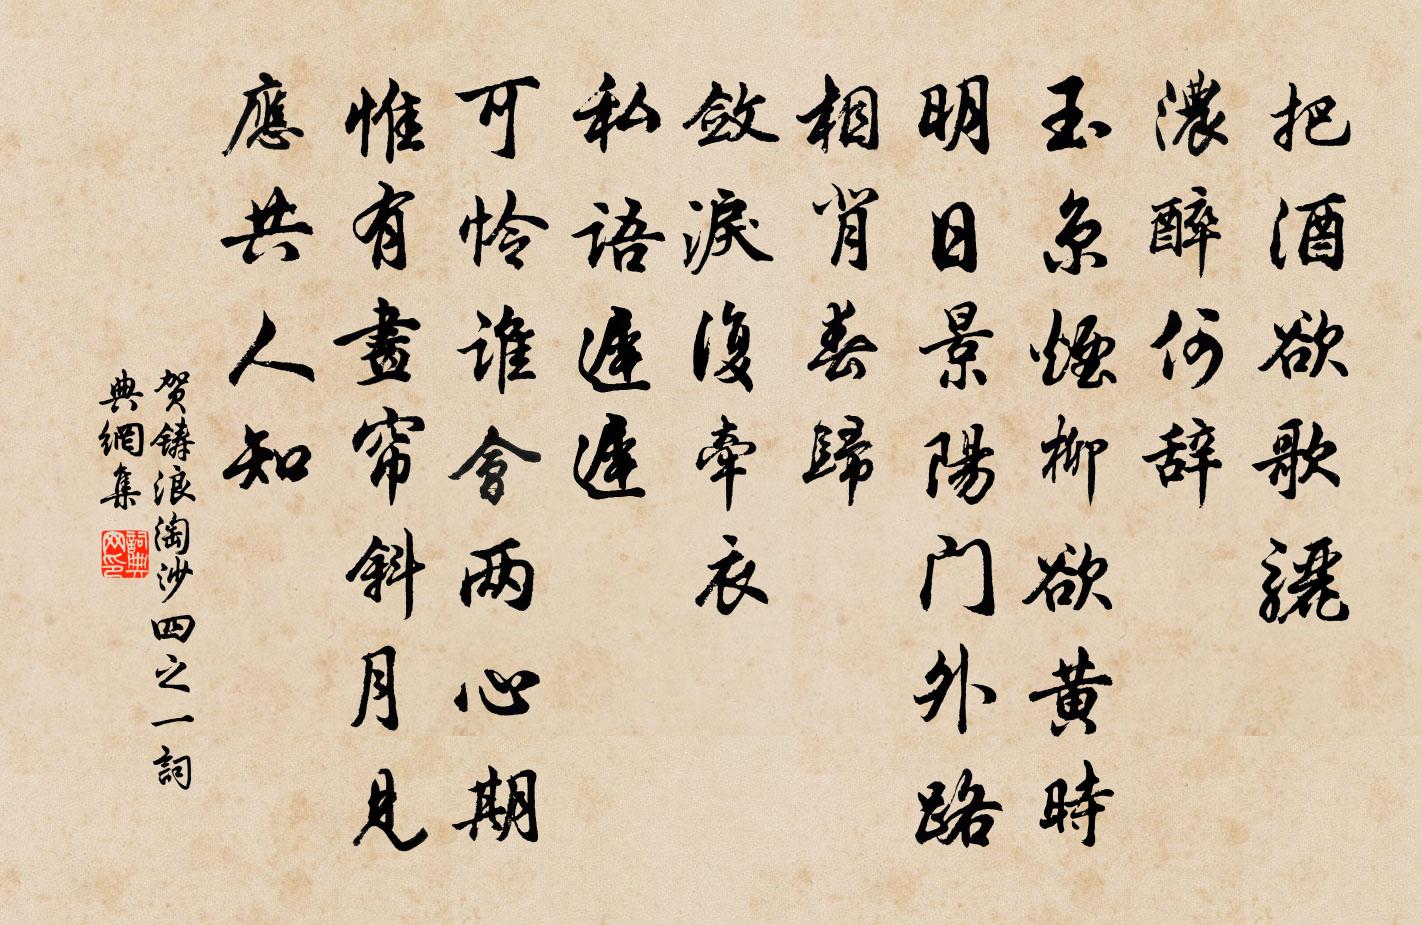 把酒欲歌驪
濃醉何辞
玉京煙柳欲黄時
明日景陽门外路
相背春歸
斂淚復牽衣
私語遲遲
可怜誰會两心期
惟有畫帘斜月見
應共人知
贺鑄浪淘沙四之一詞
典網集
詞典网印